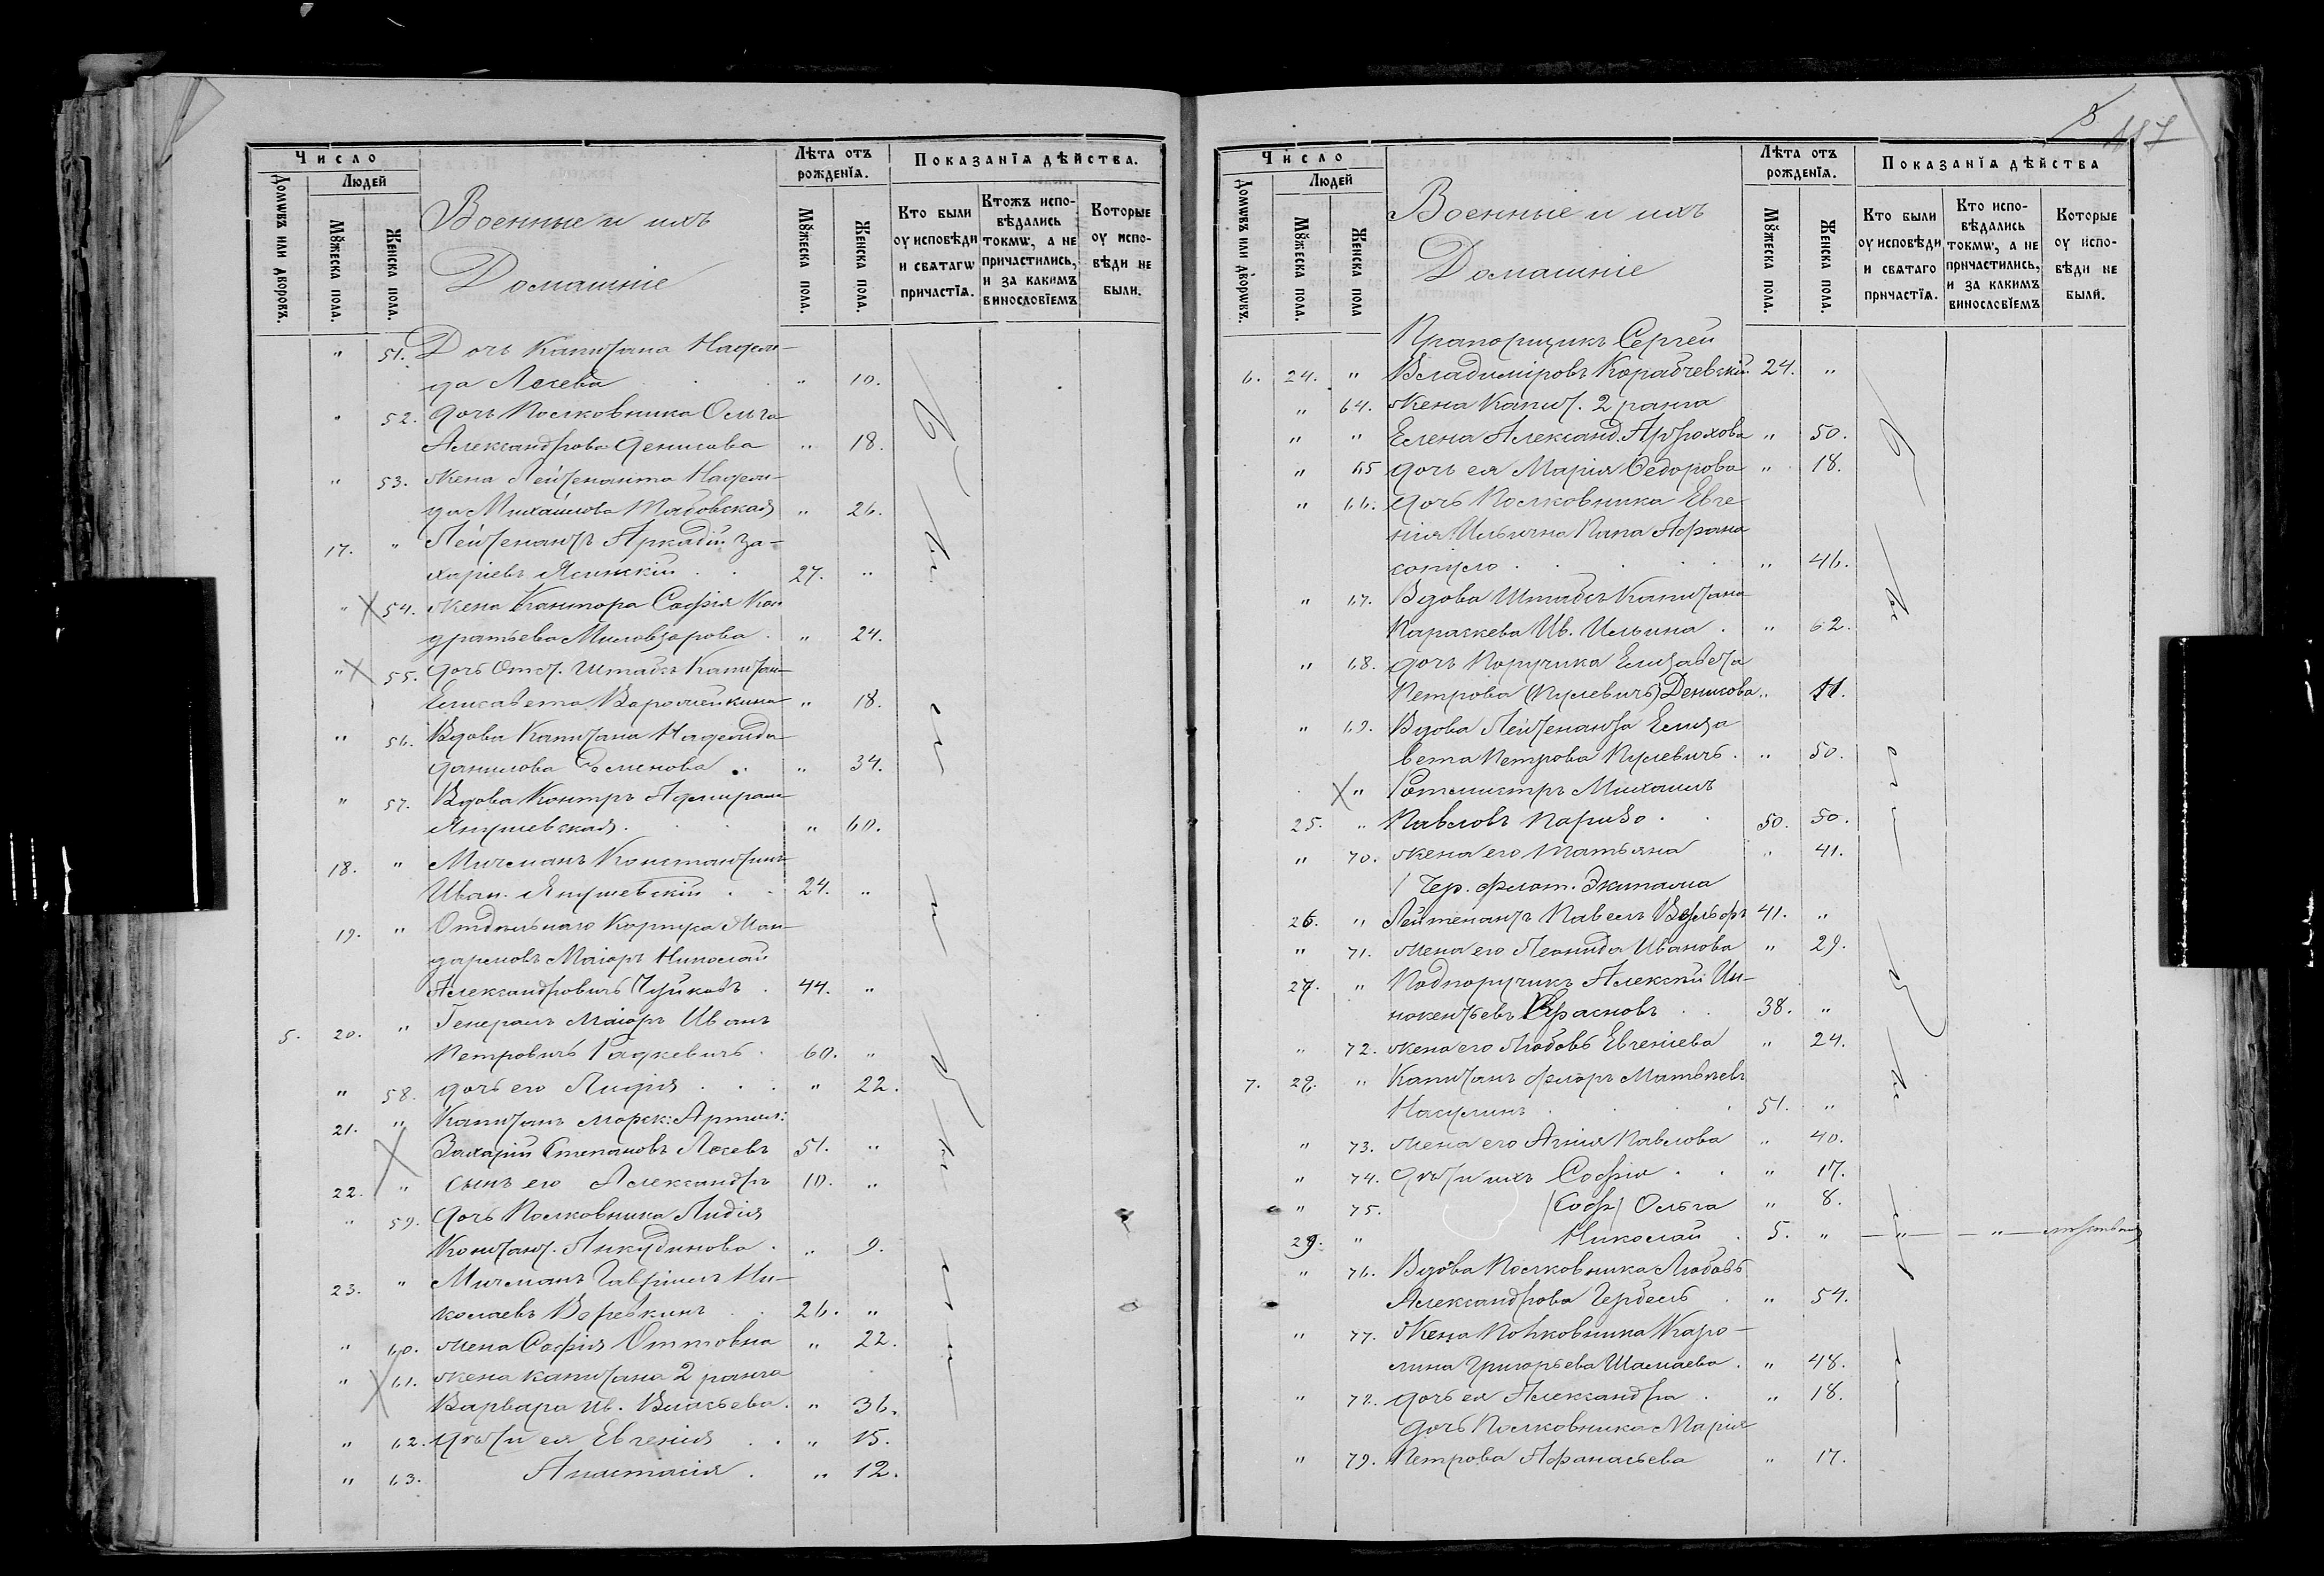 Число
Домѡвъ или дворовъ.
Людей
Мꙋжеска пола.
Женска пола.
Военные и ихъ
Домашніе
Лѣта отъ рожденїѧ.
Мꙋжеска пола.
Женска пола.
Показанїѧ дѣйства.
Кто были оу исповѣди и свѧтагѡ причастїѧ.
Ктожъ исповѣдались токмѡ, а не причастились, и за какимъ винословїемъ
Которые оу исповѣди не были.
" 51. Дочь Капитана Надеж-
да Лосева " 10.
" 52. Дочь Полковника Ольга
Александрова Денисова " 18.
" 53. Жена Лейтенанта Надеж-
да Михайлова " 26.
17. " Лейтенантъ Аркадій За-
харіевъ Ясинскій 27. "
" 54. Жена Софія Кон
дратьева " 24.
" 55. Дочь Отст. Штабсъ Капитан-
Елисавета " 18.
" 56. Вдова Капитана Надежда
Данилова Семенова " 34.
" 57. Вдова Контръ Адмирала
Янушевская " 60.
18. " Мичманъ Константинъ
Иван. Янушевскій 24. "
19. " Отдѣльнаго Корпуса Жан-
дармовъ Маіоръ Николай
Александровичъ Чуйковъ 44. "
5. 20. " Генералъ Маіоръ Иванъ
Петровичъ Радкевичъ 60. "
" 58. дочь его Лидія " 22.
21. " Капитанъ морск: Артил:
Захарій Степановъ Лосевъ 51. "
22. " сынъ его Александръ 10. "
" 59. Дочь Полковника Лидія
Констант. Анкудинова " 9.
23. " Мичманъ Гавріилъ Ни-
колаевъ Веревкинъ 26. "
" 60. жена Софія Оттовна " 22.
" 61. Жена капитана 2 ранга
Варвара Ив. Власьева " 36.
" 62. Дѣти ея Евгенія " 15.
" 63. Анастасія " 12.
Число
Домѡвъ или дворѡвъ.
Людей
Мꙋжеска пола.
Женска пола
Военные и ихъ
Домашніе
Лѣта отъ рожденїѧ.
Мꙋжеска пола.
Женска пола.
Показанїѧ дѣйства
Кто были оу исповѣди и свѧтаго причастїѧ.
Кто исповѣдались токмѡ, а не причастились, и за какимъ винословїемъ
Которые оу исповѣди не были.
Прапорщикъ Сергей
6. 24. " Владиміровъ Корабчевскій 24. "
" 64. Жена Капит. 2 ранга
" " Елена Александ. " 50.
" 65 дочь ея Марія Ѳедорова " 18.
" 66. Дочь Полковника Евге
нія Ильична Папа Афана
сопуло " 46.
" 67. Вдова Штабсъ Капитана
Параскева Ив. Ильина " 62.
" 68. Дочь Поручика Елизавета
Петрова (Кулевичъ) Денисова " 11.
" 69. Вдова Лейтенанта Елиза
вета Петрова Кулевичъ " 50.
" Ротмистръ Михаилъ
25. " Павловъ 50. 50.
" 70. жена его Татьяна " 41.
Чер. флот. Экипажа
26. " Лейтенантъ Павелъ 41. "
" 71. жена его Леонида Иванова " 29.
27. " Подпоручикъ Алексѣй Ин-
нокентьевъ Красновъ 38. "
" 72. жена его Любовь Евгеніева " 24.
7. 28. " Капитанъ флоръ Матвѣевъ
51. "
" 73. жена его Агнія Павлова " 40.
" 74. Дѣти ихъ Софія " 17.
" 75. (Соф) Ольга " 8.
29. " Николай 5. " " "
" 76. Вдова Полковника Любовь
Александрова Гербель " 54.
" 77. Жена Полковника Каро-
лина Григорьева Шамаева " 48.
" 78. дочь ея Александра " 18.
дочь Полковника Марія
" 79. Петрова Афанасьева " 17.